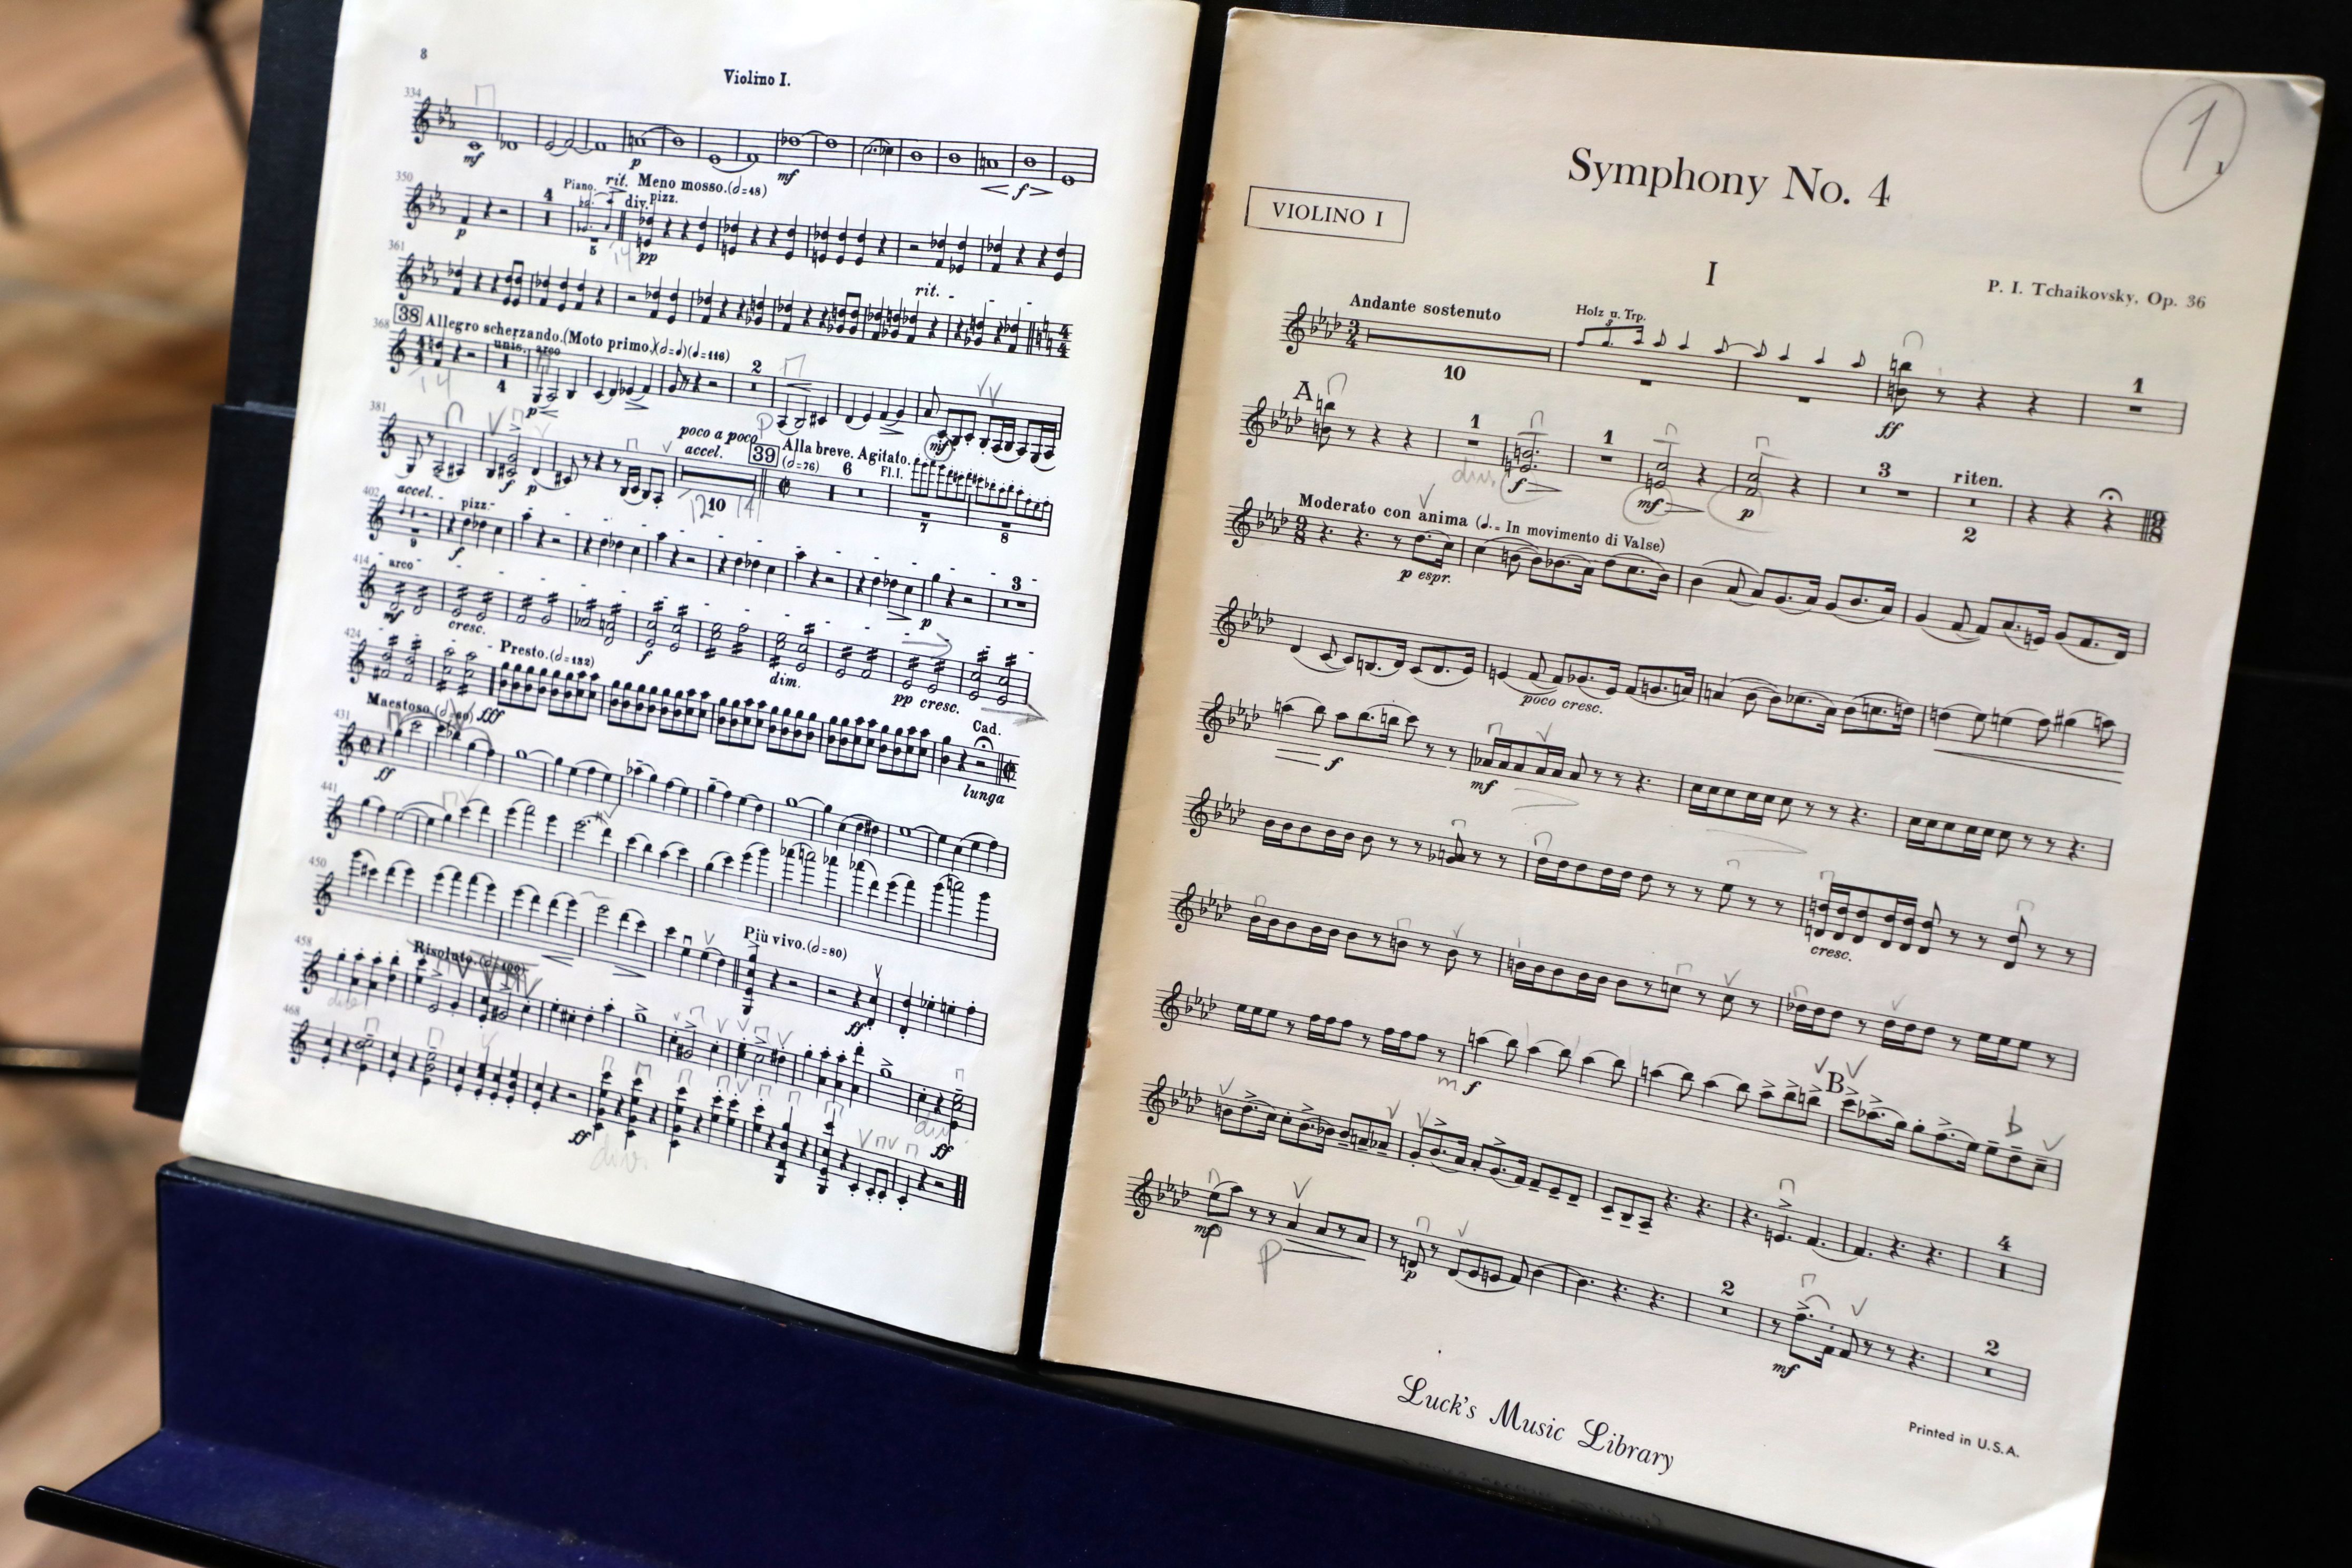 8
Violino I.
334
mf p mf f
350
Piano. rit. Meno mosso. (𝅗𝅥=48)
4 div. pizz.
p 5 14 pp
361
rit. -
38 Allegro scherzando. (Moto primo.) (𝅗𝅥=𝅗𝅥) (𝅗𝅥=116)
368
unis. arco 2
14 4 p p mf
381
poco a poco accel. 39 Alla breve. Agitato.
(𝅗𝅥=76) 6 Fl.I.
f p 12 10 14 7 8
402
accel. - - pizz.
9 f p 3
414
arco
mf cresc. f dim. pp cresc.
424
Presto. (𝅗𝅥=132)
fff Cad.
lunga
431
Maestoso (𝅗𝅥=80)
ff
441
450
Più vivo. (𝅗𝅥=80)
ff
458
Risoluto. (𝅗𝅥=100)
div. ff
div.
468
ff
div.
1
1
Symphony No. 4
VIOLINO I
I
P. I. Tchaikovsky, Op. 36
Andante sostenuto
Holz u. Trp.
3
10 ff 1
A
1 1 3 riten.
div. f mf p 2
Moderato con anima (𝅘𝅥. = In movimento di Valse)
p espr.
poco cresc.
f mf
cresc.
m f
B
4
mf p p p 2 mf 2
Luck's Music Library
Printed in U.S.A.